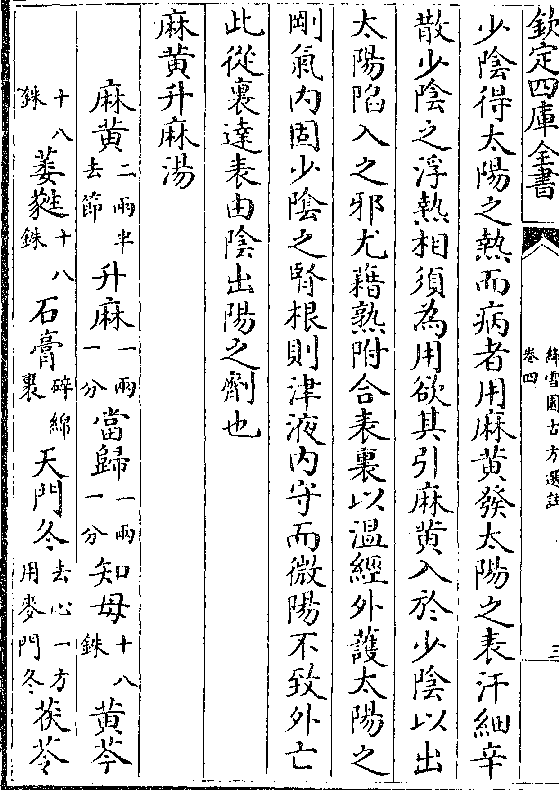 欽定四庫全書
絳雪園古方選註
卷四
三
少陰得太陽之熱而病者用麻黃發太陽之表汗細辛
散少陰之浮熱相須為用欲其引麻黃入於少陰以出
太陽陷入之邪尤藉熟附合表裏以溫經外護太陽之
剛氣內固少陰之腎根則津液內守而微陽不致外亡
此從裏達表由陰出陽之劑也
麻黃升麻湯
麻黃二兩半去節 升麻一兩一分 當歸一兩一分 知母十八銖 黃芩
十八銖 萎蕤十八銖 石膏碎綿裹 天門冬去心一方用麥門冬 茯苓